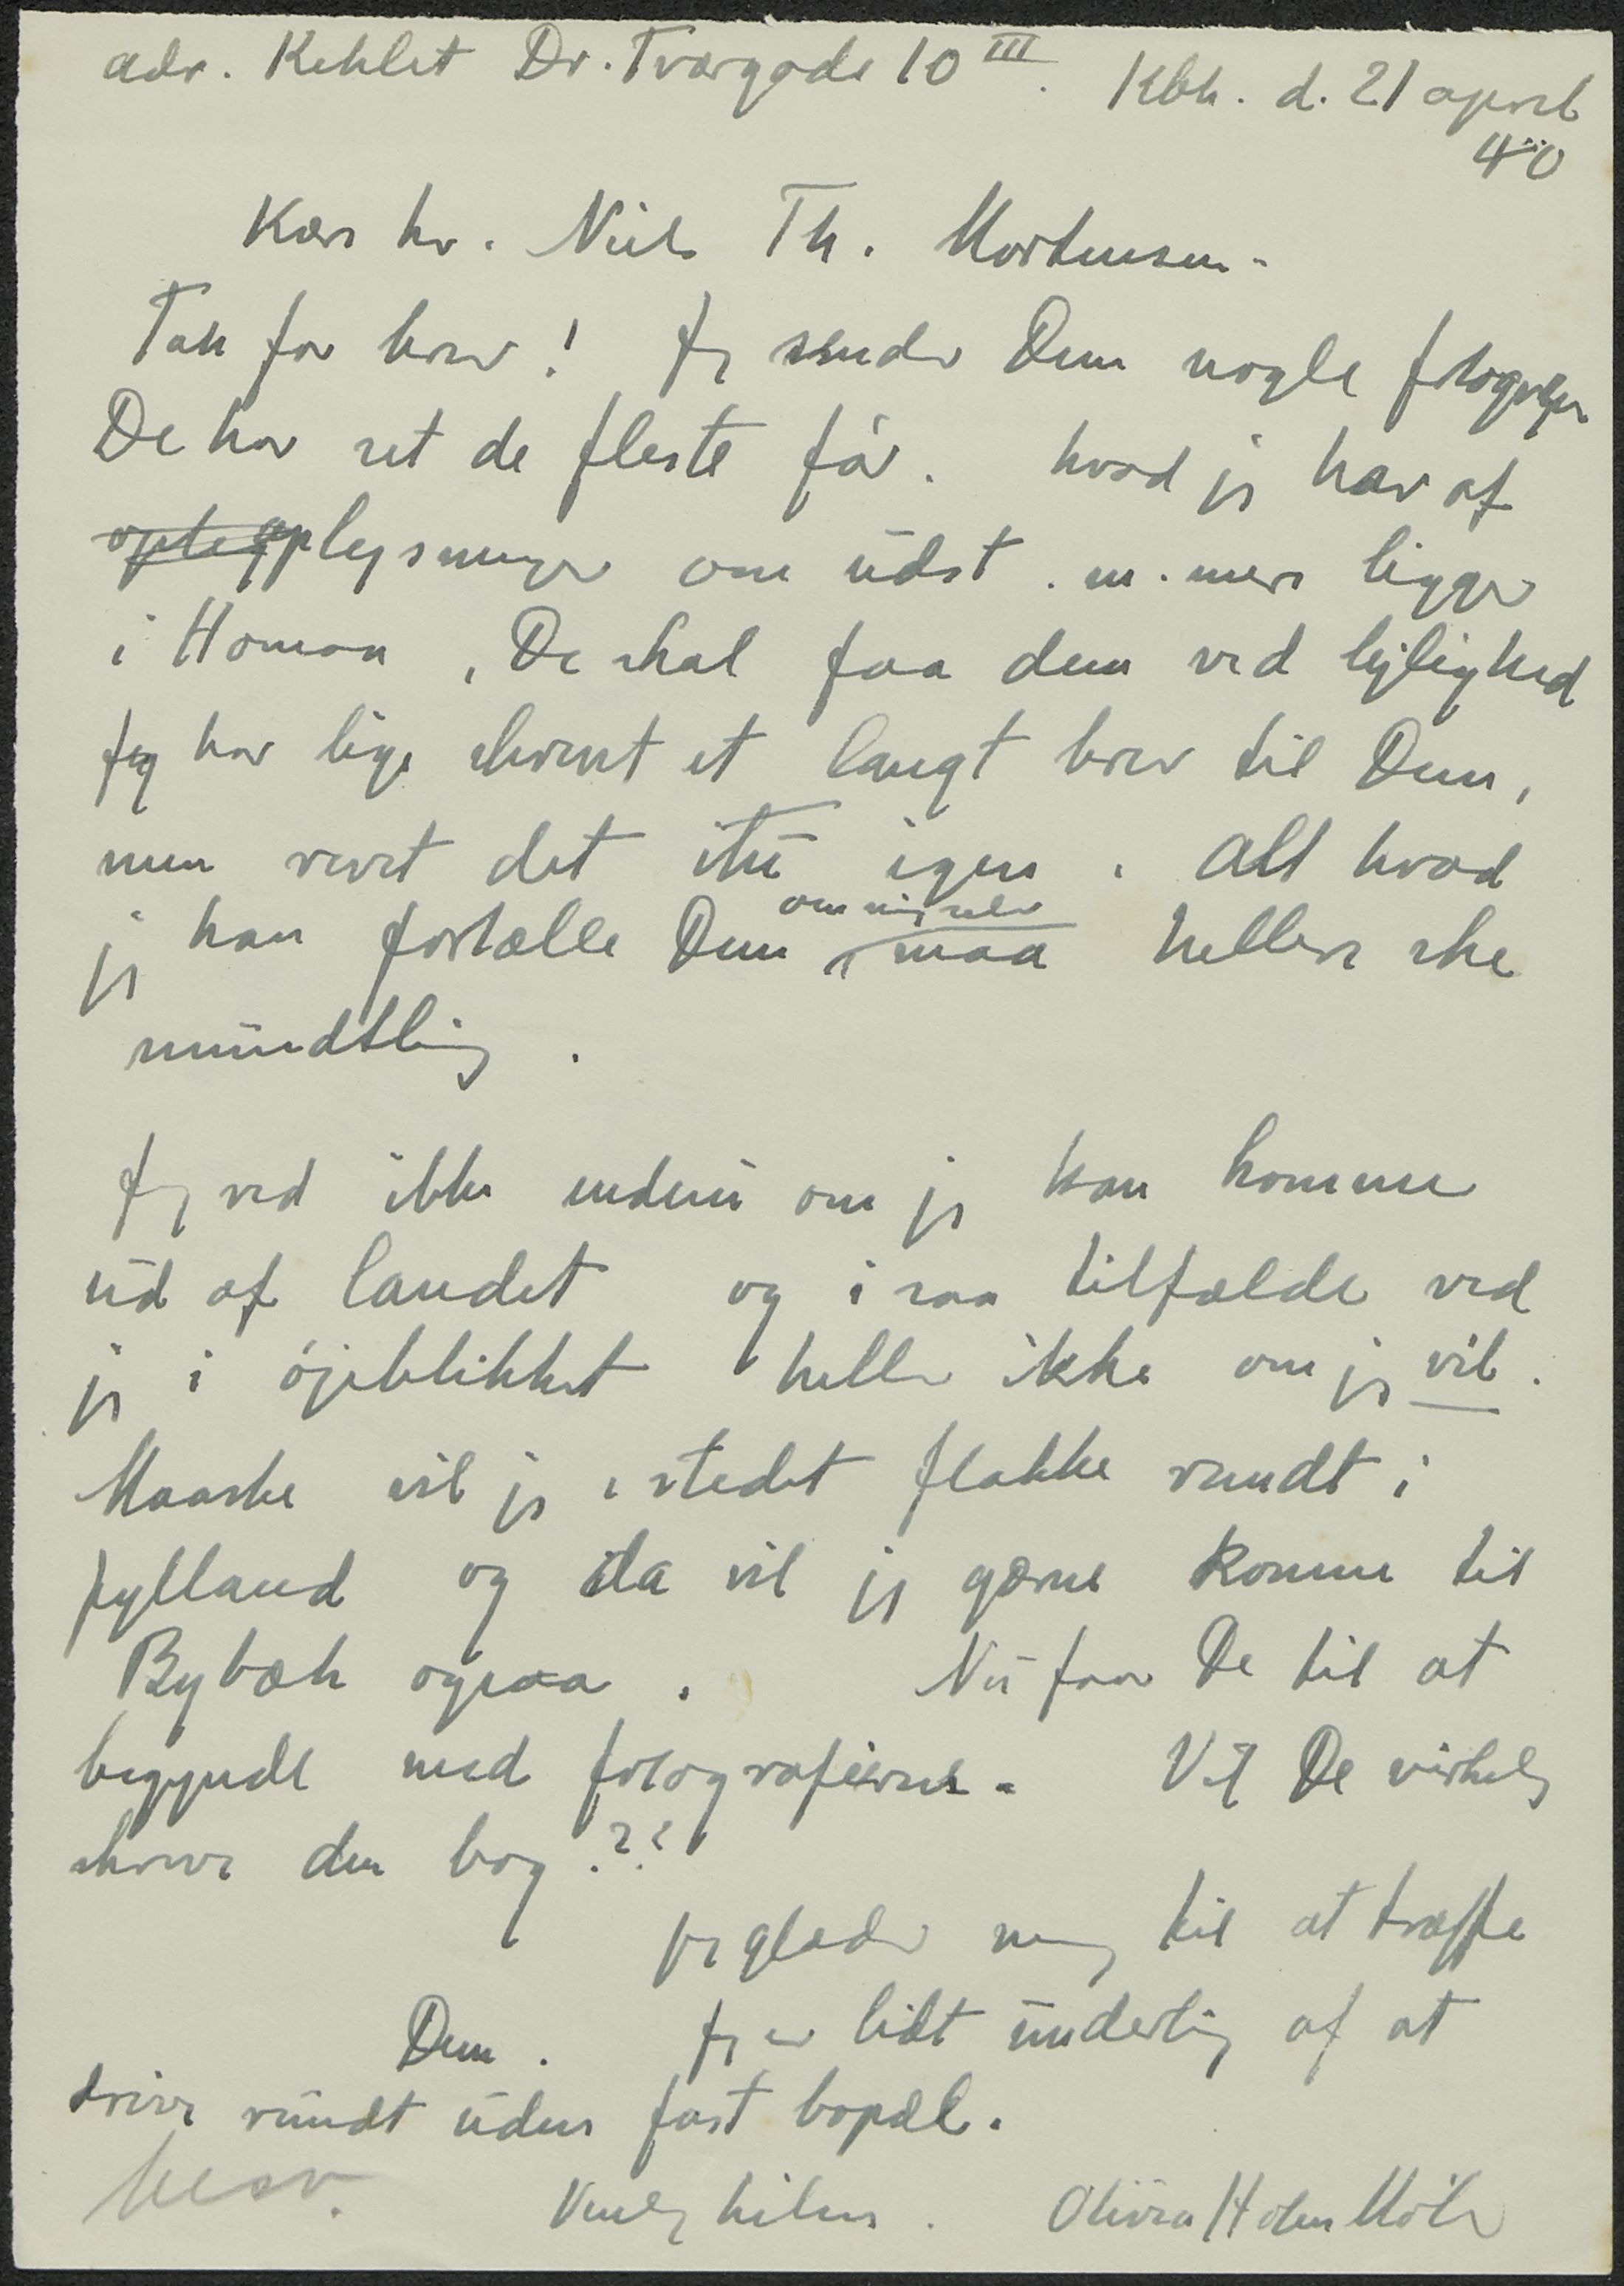 adr. Kehlet Dr. Tværgade 10 III. Kbh. d. 21 april
40
Kære hr. Niels Th. Mortensen.
Tak for brev! Jeg sender Dem nogle fotografier
De har set de fleste før. hvad jeg har af
oplysninger om udst. m. mere ligger
i Homaa, De skal faa dem ved lejlighed
Jeg har lige skrevet et langt brev til Dem,
men revet det itu igen. Alt hvad
om mig selv
jeg kan fortælle Dem maa hellere ske
mundtlig.
Jeg ved ikke endnu om jeg kan komme
ud af landet og i saa tilfælde ved
jeg i øjeblikket heller ikke om jeg vil.
Maaske vil jeg i stedet flakke rundt i
Jylland og da vil jeg gærne komme til
Bybæk ogsaa. Nu faar De til at
begynde med fotografierne. Vil De virkelig
skrive den bog??
Jeg glæder mig til at træffe
Dem. Jeg er lidt underlig af at
drive rundt uden fast bopæl.
besv.
Venlig hilsen. Olivia Holm Møller